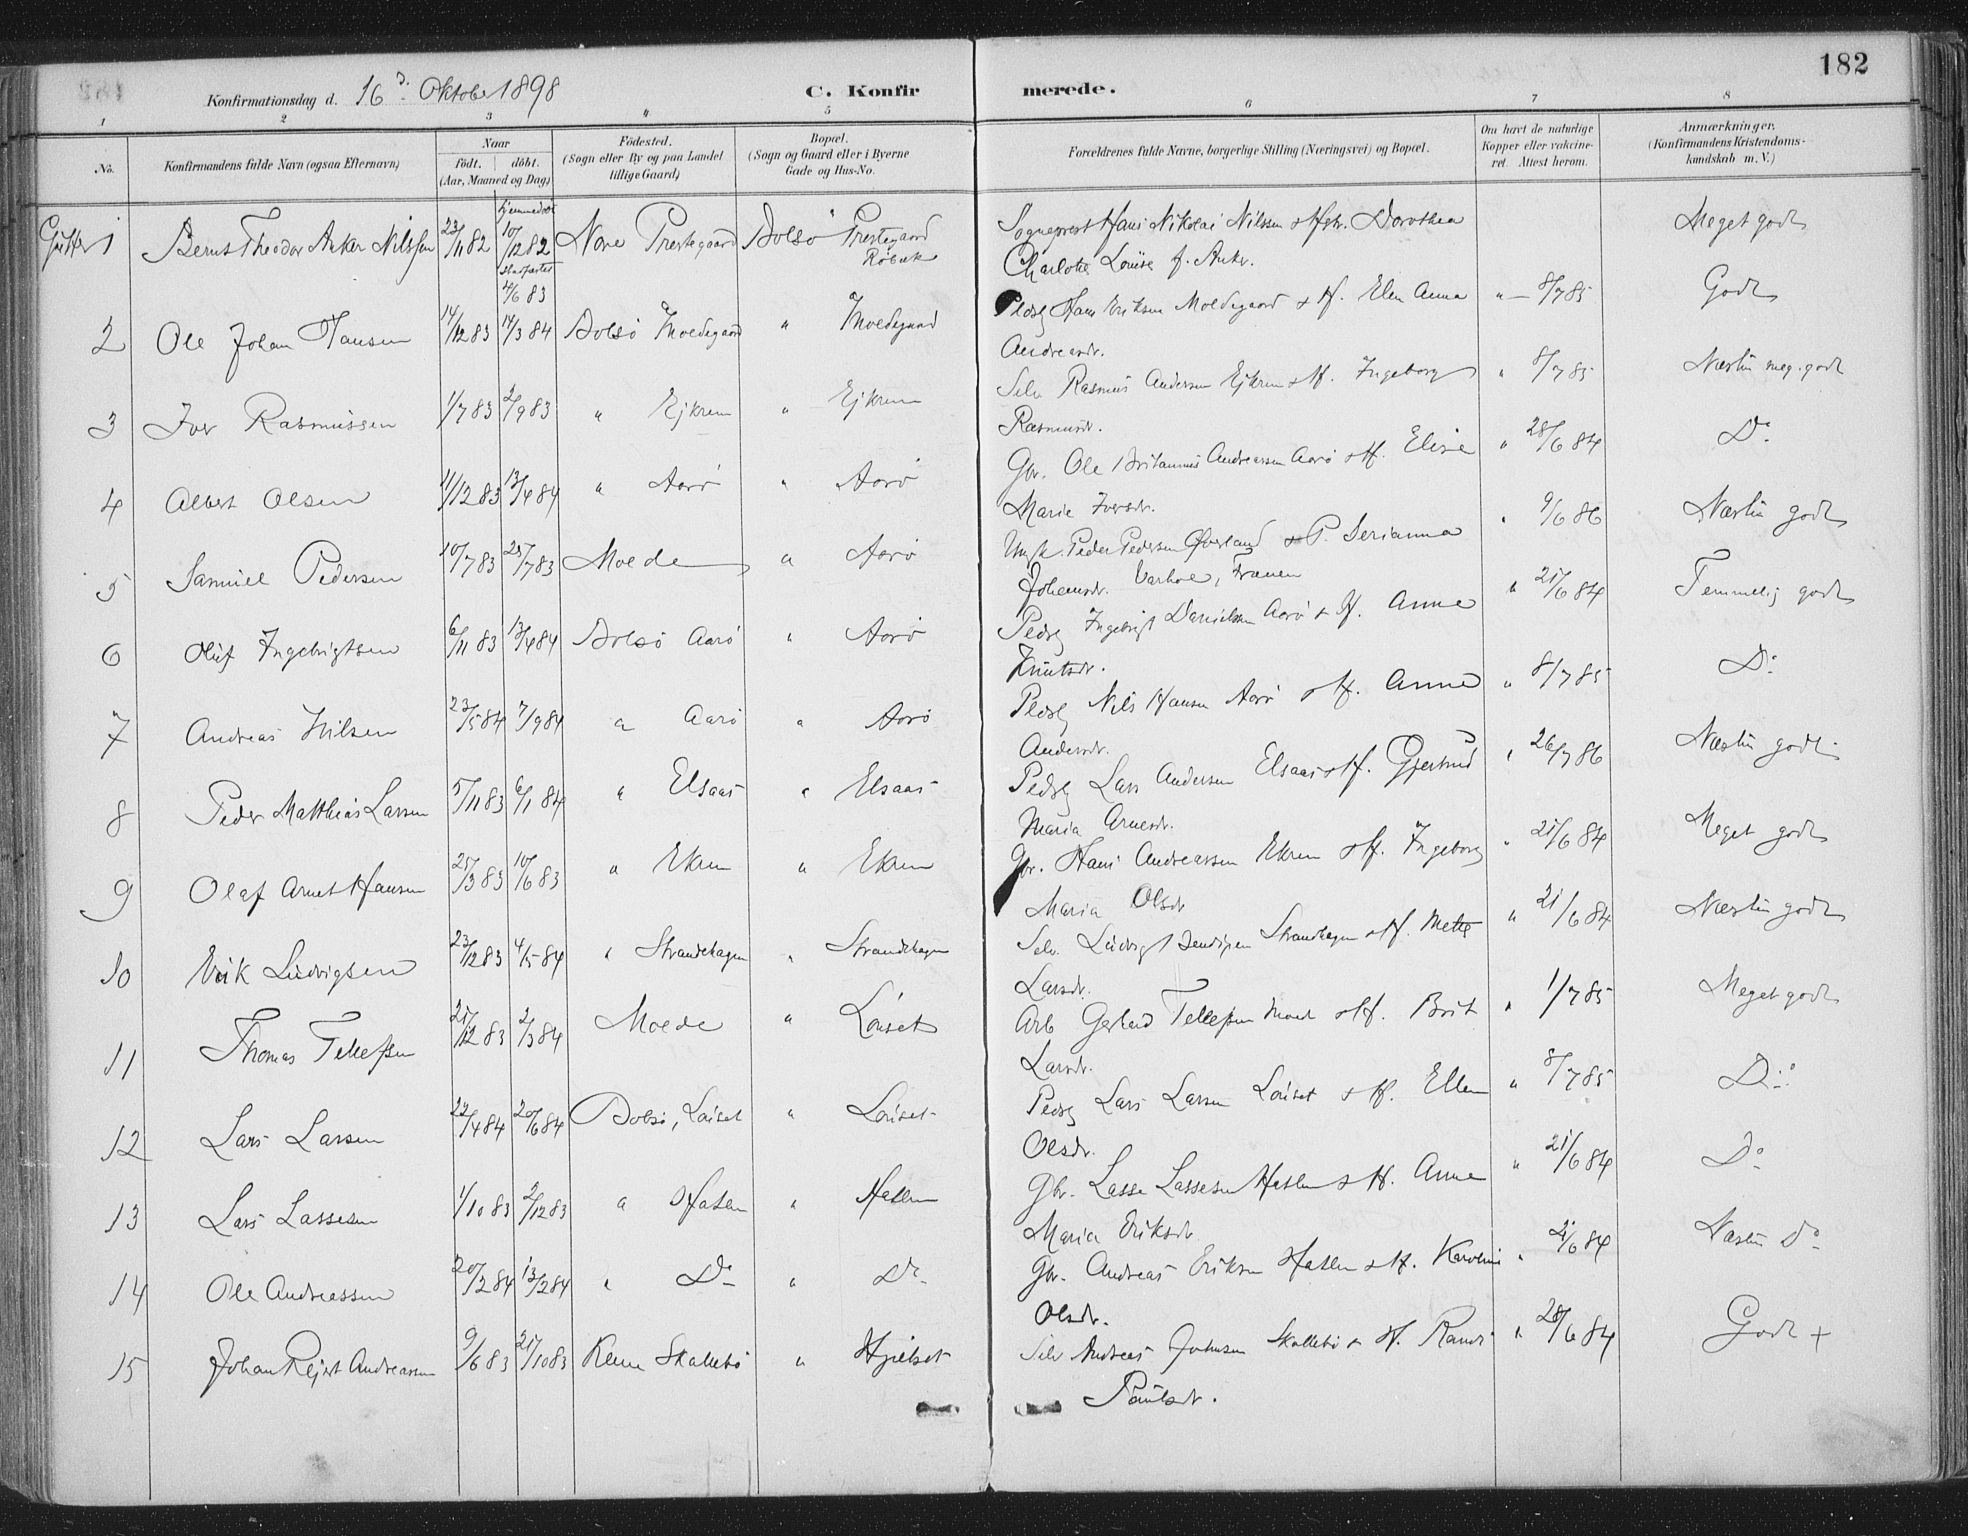 182
Konfirmationsdag d. 16d. Oktober 1898 C. Konfirmerede.
1 2 3 4 5 6 7 8
No. Konfirmandens fulde Navn (ogsaa Efternavn) Naar födt. döbt. (Aar, Maaned og Dag) Födested. (Sogn eller By og paa Landet tillige Gaard) Bopæl. (Sogn og Gaard eller i Byerne Gade og Hus-No. Forældrenes fulde Navne, borgerlige Stilling (Næringsvei) og Bopæl. Om havt de naturlige Kopper eller vakcineret. Attest herom. Anmærkninger. (Konfirmandens Kristendomskundskab m. V.)
Gutter 1 Bernt Theodor Anker Nilssen 23/11 82 hjemmedøbt 10/12 82 4/6 83 Prestegaard Bolsø Prestegaard Røbek Sogneprest Hans Nikolai Nilssen & Hstr. Dorothea Meget godt
Charlotte Louise f. Anker.
2 Ole Johan Hansen 14/12 83 14/3 84 Bolsø Moldegaard " Moldegaard Pldsg Hans Eriksen Moldegaard & H. Elen Anna " 8/7 85 Godt
Andreasdr.
3 Iver Rasmussen 1/7 83 2/9 83 " Ejkrem " Ejkrem Selv. Rasmus Andersen Ejkrem & H. Ingeborg " 8/7 85 Næstin meg. godt
Rasmusdr.
4 Albert Olsen 11/12 83 13/4 84 " Aarø " Aarø Gbr. Ole Andreassen Aarø & H. Elise " 28/6 84 Do
Marie Iversdr.
5 Samuel Pedersen 10/7 83 25/7 83 Molde " Aarø Ungk. Peder Pedersen Øverland & P. Serianna " 9/6 86 Næstin godt
Johansdr. Varhol, Frænen
6 Oluf Ingebrigtsen 6/11 83 13/4 84 Bolsø Aarø " Aarø Pldsg Ingebrigt Danielsen Aarø & H. Anne " 21/6 84 Temmelig godt
Knutsdr.
7 Andreas Nilsen 23/5 84 7/9 84 " Aarø " Aarø Pldsg Nils Hansen Aarø & H. Anne " 8/7 85 Do
Andersdr.
8 Peder Matthias Larsen 5/11 83 6/1 84 " Elsaas " Elsaas Pldsg Lars Andersen Elsaas & H. Gjertrud " 26/7 86 Næstin godt
Maria Arnesdr.
9 Olaf Arnet Hansen 25/3 83 10/6 83 " Ekrem " Ekrem Gbr. Hans Andreassen Ekrem & H. Ingeborg " 21/6 84 Meget godt
Maria Olsdr
10 Erik Ludvigsen 23/12 83 4/5 84 " Strandehagen " Strandehagen Selv. Ludvigt Strandhagen & H. Mette " 21/6 84 Næstin godt
Larsdr.
11 Thomas Tellefsen 21/12 83 2/3 84 Molde " Lønset Arb Gerhard Tellefsen Molde & H. Brit " 1/7 85 Meget godt
Larsdr.
12 Lars Larsen 22/4 84 20/6 84 Bolsø, Lønset " Lønset Pldsg Lars Larsen Lønset & H. Ellen " 8/7 85 Do
Olsdr.
13 Lars Lassesen 1/10 83 2/12 83 " Hatlen " Hatlen Gbr. Lasse Lassesen Hatlen & H. Anne " 21/6 84 Do
Maria Eriksdr
14 Ole Andreassen 20/2 84 13/2 84 " Do " Do Gbr. Andreas Eriksen Hatlen & H. Karoline " 21/6 84 Næstin Do
Olsdr.
15 Johan Rejert Andreassen 9/6 83 21/10 83 Kleve Skallebø " Hjelset Selv Andreas Johnsen Skallebø & H. Randi " 28/6 84 Godt +
Paulsdr.